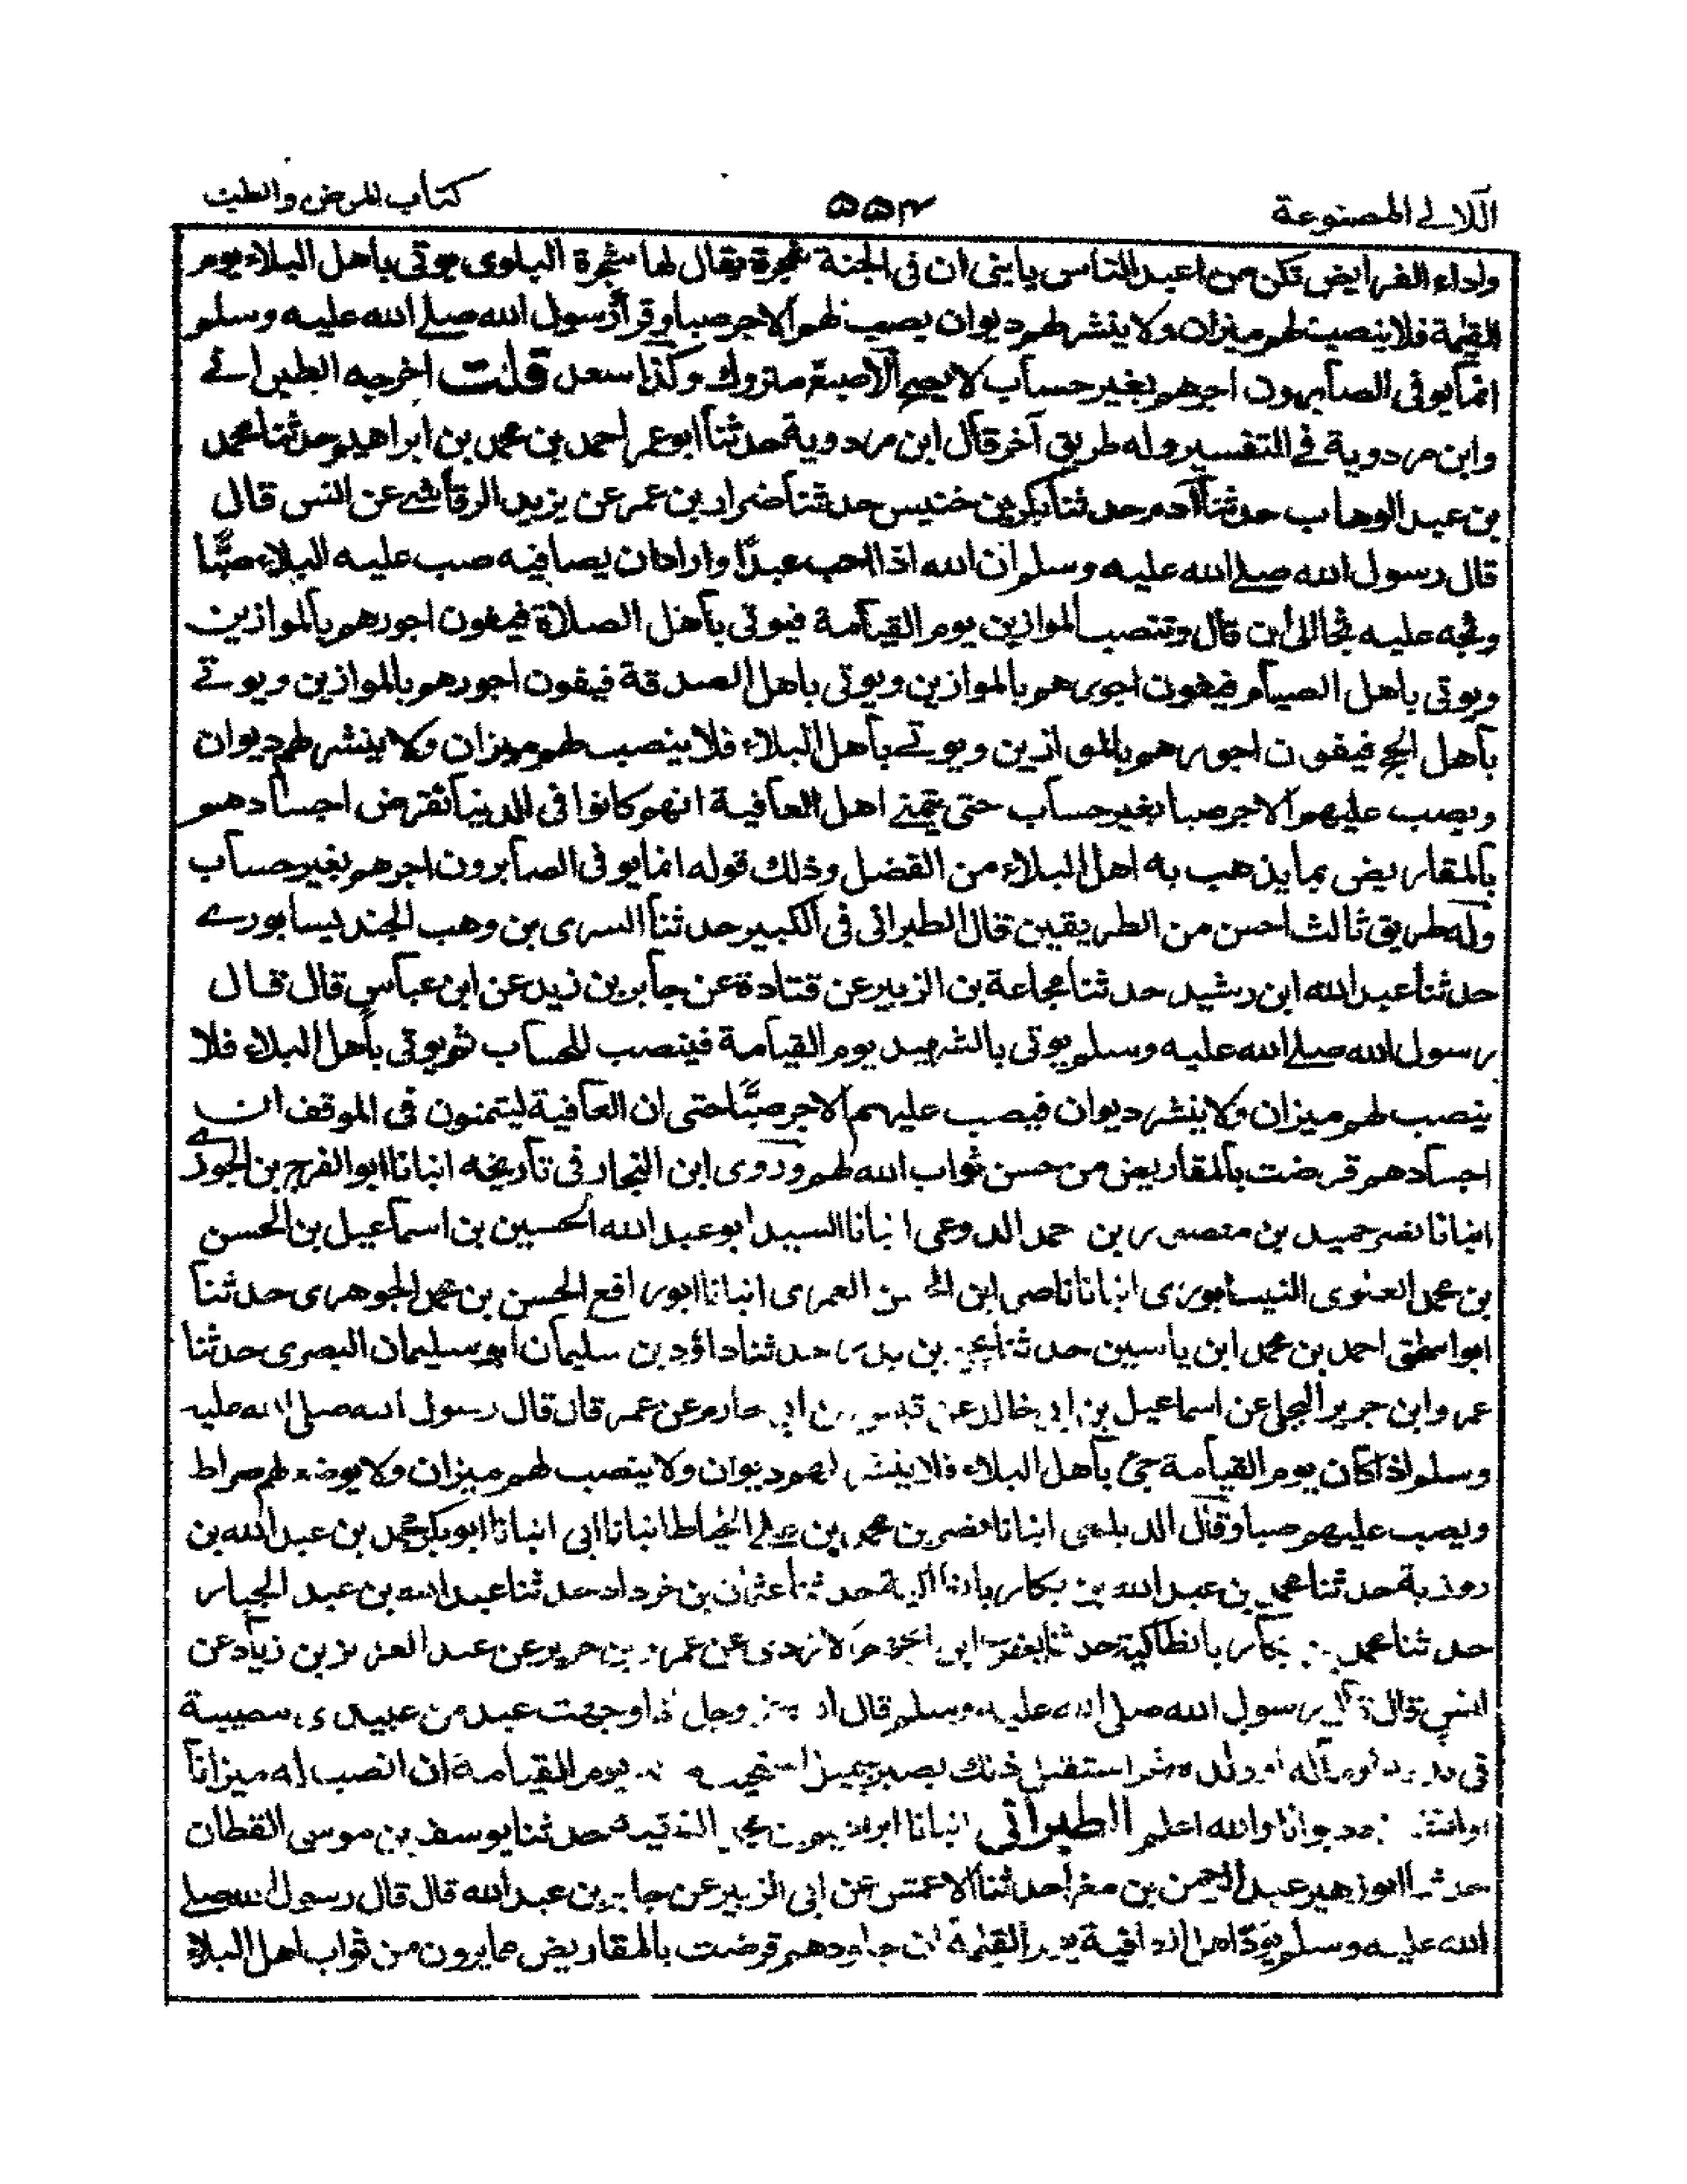 اللآلى المصنوعة
٥٥٤
كتاب المرض والطب
واداء الفرايض تكن من اعبد الناس يا بنى ان فى الجنة شجرة يقال لها شجرة البلوى يوتى باهل البلاء يوم
القيمة فلا ينصب لهم ميزان ولا ينشر لهم ديوان يصب لهم الاجر صبا وقرأ رسول الله صلے الله عليه وسلم
انما يوفى الصابرون اجرهم بغير حساب لا يصح الاصبغ متروك وكذا سعد قلت اخرجه الطبرانے
وابن مردوية فے التفسير وله طريق آخر قال ابن مردوية حدثنا ابو عمر احمد بن محمد بن ابراهيم حدثنا محمد
بن عبد الوهاب حدثنا آدم حدثنا بكر بن خنيس حدثنا ضرار بن عمر عن يزيد الرقاشے عن انس قال
قال رسول الله صلے الله عليه وسلم ان الله اذا احب عبدًا واراد ان يصافيه صب عليه البلاء صبًّا
وثجه عليه ثجا الى ان قال وتنصب الموازين يوم القيامة فيوتى باهل الصلاة فيوفون اجورهم بالموازين
ويوتى باهل الصيام فيوفون اجورهم بالموازين ويوتى باهل الصدقة فيفون اجورهم بالموازين ويوتے
باهل الحج فيفون اجورهم بالموازين ويوتے باهل البلاء فلا ينصب لهم ميزان ولا ينشر لهم ديوان
ويصب عليهم الاجر صبا بغير حساب حتى يتمنے اهل العافية انهم كانوا فى الدنيا تقرض اجسادهم
بالمقاريض بما يذهب به اهل البلاء من الفضل وذلك قوله انما يوفى الصابرون اجرهم بغير حساب
وله طريق ثالث احسن من الطريقين قال الطبرانى فى الكبير حدثنا السرى بن وهب الجنديسابورے
حدثنا عبد الله ابن رشيد حدثنا مجاعة بن الزبير عن قتادة عن جابر بن زيد عن ابن عباس قال قال
رسول الله صلے الله عليه وسلم يوتى بالشهيد يوم القيامة فينصب للحساب ثم يوتى باهل البلاء فلا
ينصب لهم ميزان ولا ينشر ديوان فيصب عليهم الاجر صبًّا حتى ان العافية ليتمنون فى الموقف ان
اجسادهم قرضت بالمقاريض من حسن ثواب الله لهم وروى ابن النجار فى تاريخه انبانا ابو الفرج بن الجوزے
انبانا نصر حميد بن منصور بن حمد الدوعى انبانا السيد ابو عبد الله الحسين بن اسماعيل بن الحسن
بن محمد العلوى النيسابورى انبانا ناصر ابن العمرى انبانا ابو رافع الحسن بن محمد الجوهرى حدثنا
ابو اسحق احمد بن محمد ابن ياسين حدثنا بن بدر حدثنا داؤد بن سليمان ابو سليمان البصرى حدثنا
عمرو ابن جرير البجلى عن اسماعيل بن ابى خالد عن قيس بن ابى حازم عن عمر قال قال رسول الله صلى الله عليه
وسلم اذا كان يوم القيامة جئ باهل البلاء فلا ينشر لهم ديوان ولا ينصب لهم ميزان ولا يوضع لهم صراط
ويصب عليهم صبا وقال الديلمى انبانا نصر بن محمد بن علے الخياط انبانا ابى انبانا ابو بكر محمد بن عبد الله بن
روزبة حدثنا محمد بن عبد الله بن بكار حدثنا عثمان بن خرداد حدثنا عبد الله بن عبد الجبار
حدثنا محمد بن بكار بانطاكية حدثنا الازدى عن عمرو بن جرير عن عبد العزيز بن زياد عن
انس قال قال رسول الله صلى الله عليه وسلم قال عز وجل اذا وجهت عبد من عبيدى مصيبة
فى او ماله او ولده ثم استقبل ذلك بصبر جميل استحييت يوم القيامة ان انصب له ميزانا
او انشر ديوانا والله اعلم الطبرانى انبانا ابراهيم بن محمد حدثنا يوسف بن موسى القطان
حدثنا ابو زهير عبد الرحمن بن مغرا حدثنا الاعمش عن ابى الزبير عن جابر بن عبد الله قال قال رسول الله صلے
الله عليه وسلم يود اهل العافية يوم القيمة ان جلودهم قرضت بالمقاريض مما يرون من ثواب اهل البلاء